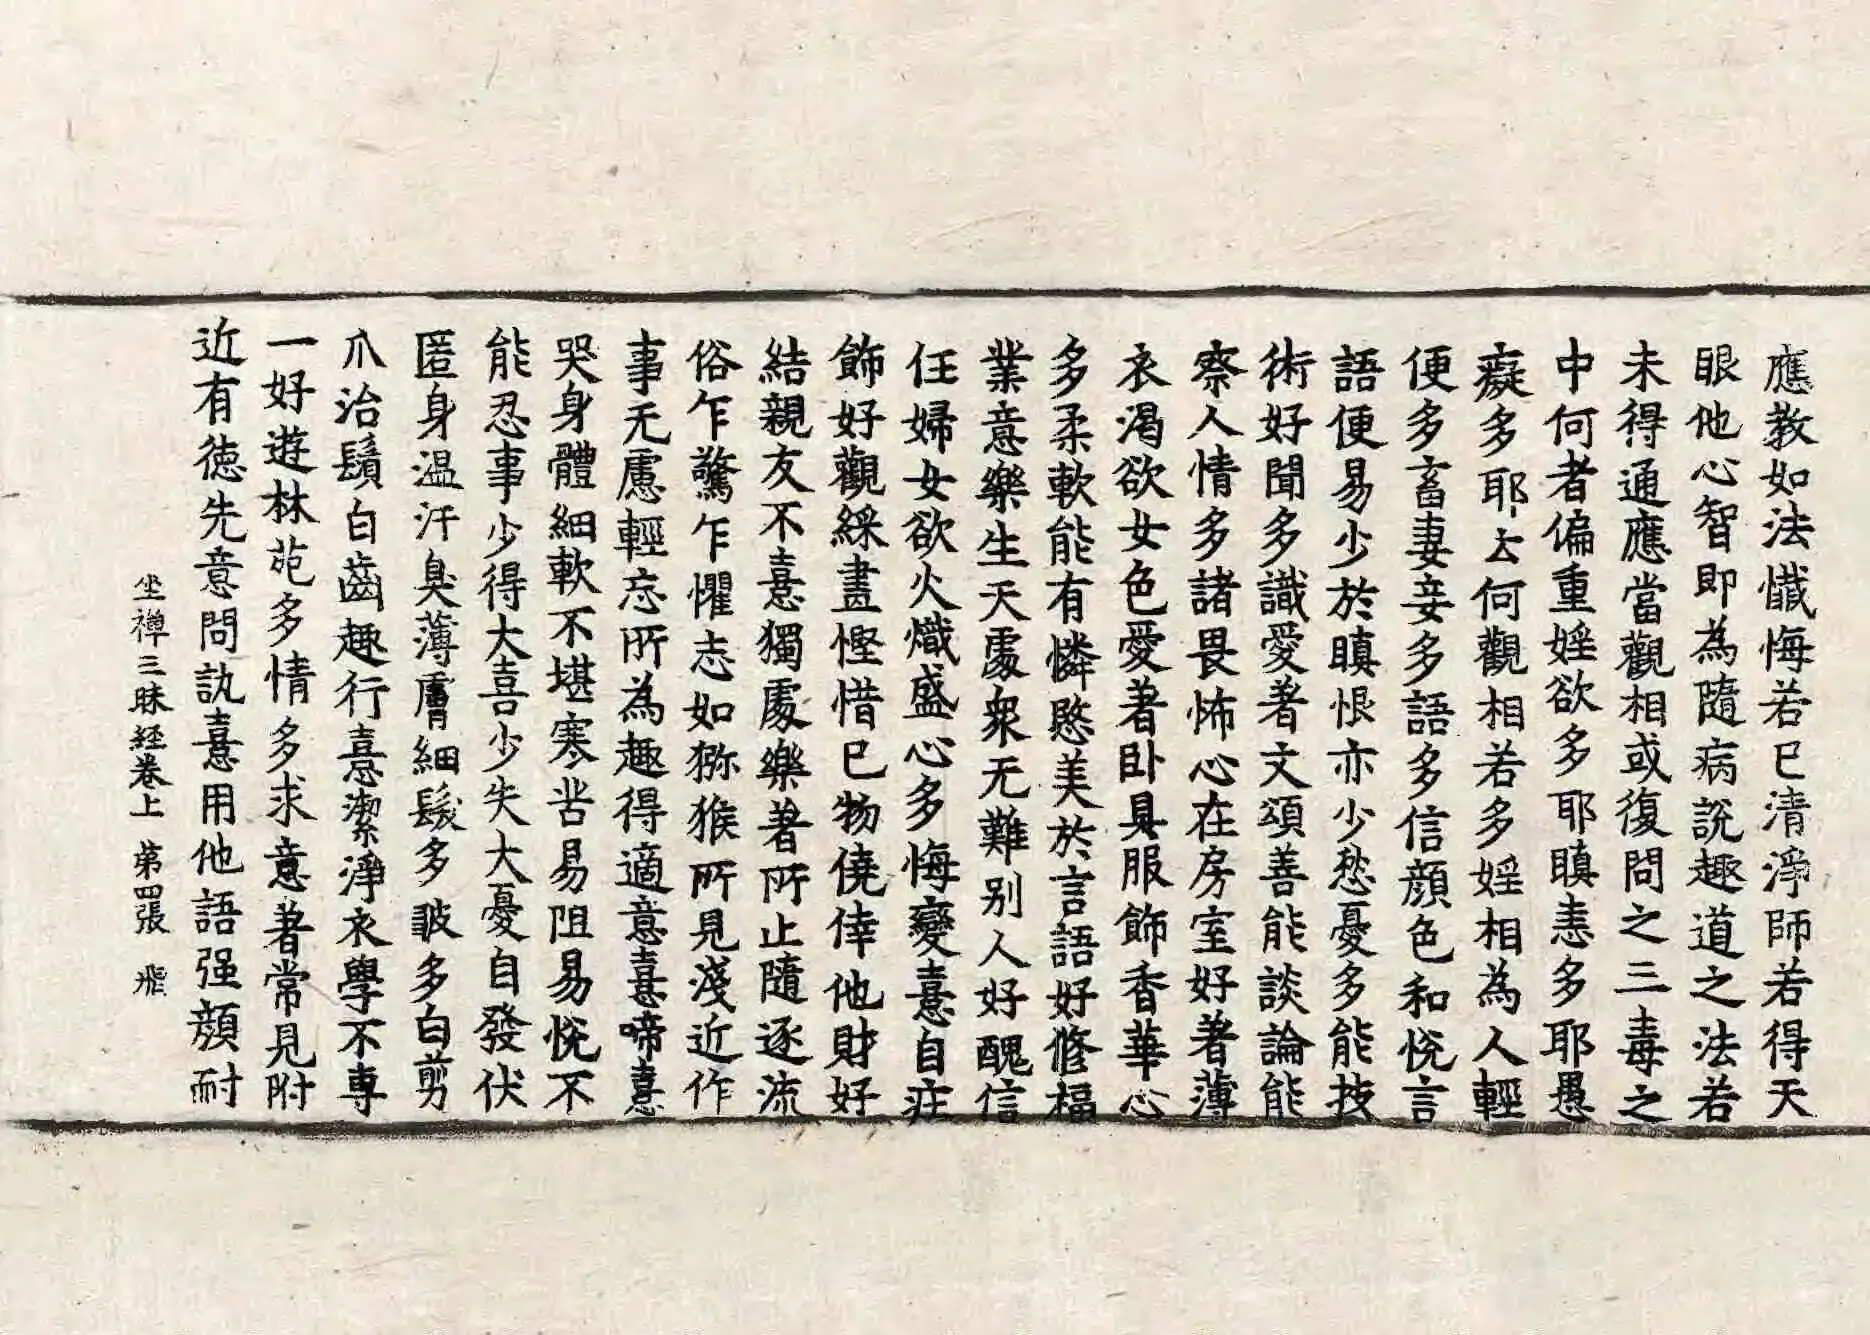 應教如法懺悔若已清淨師若得天
眼他心智即為隨病說趣道之法若
未得通應當觀相或復問之三毒之
中何者偏重婬欲多耶瞋恚多耶愚
癡多耶云何觀相若多婬相為人輕
便多畜妻妾多語多信顏色和悅言
語便易少於瞋恨亦少愁憂多能技
術好聞多識愛著文頌善能談論能
察人情多諸畏怖心在房室好著薄
衣渴欲女色愛著卧具服飾香華心
多柔軟能有憐愍美於言語好修福
業意樂生天處衆无難别人好醜信
任婦女欲火熾盛心多悔變憙自莊
飾好觀綵畫慳惜已物僥倖他財好
結親友不憙獨處樂著所止隨逐流
俗乍驚乍懼志如猕猴所見淺近作
事无慮輕忘所為趣得適意憙啼憙
哭身體細軟不堪寒苦易阻易悅不
能忍事少得大喜少失大憂自發伏
匿身温汗臭薄膚細髮多皺多白剪
爪治鬚白齒趣行憙潔淨衣學不專
一好遊林苑多情多求意著常見附
近有徳先意問訊憙用他語强顏耐
坐禪三昧経卷上 第四張 飛